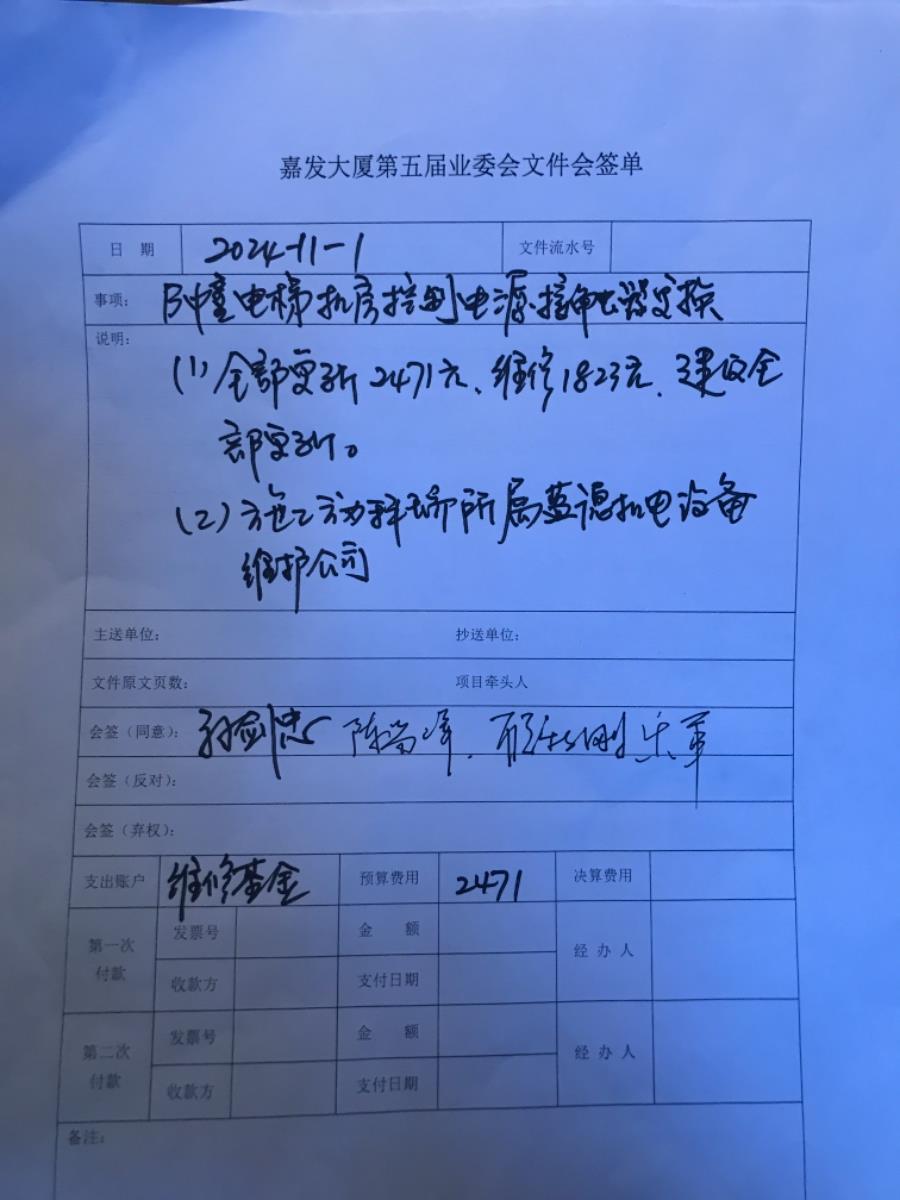 嘉发大厦第五届业委会文件会签单
日 期 2024-11-1 文件流水号
事项： B幢电梯机房控制电源接触器更换
说明：
(1) 全部更新2471元、维修1823元、建议全
部更新。
(2) 施工方为 所属蓝德机电设备
维护公司
主送单位： 抄送单位：
文件原文页数： 项目牵头人
会签（同意）：
会签（反对）：
会签（弃权）：
支出账户 维修基金 预算费用 2471 决算费用
第一次付款 发票号 金 额 经 办 人
收款方 支付日期
第二次付款 发票号 金 额 经 办 人
收款方 支付日期
备注：